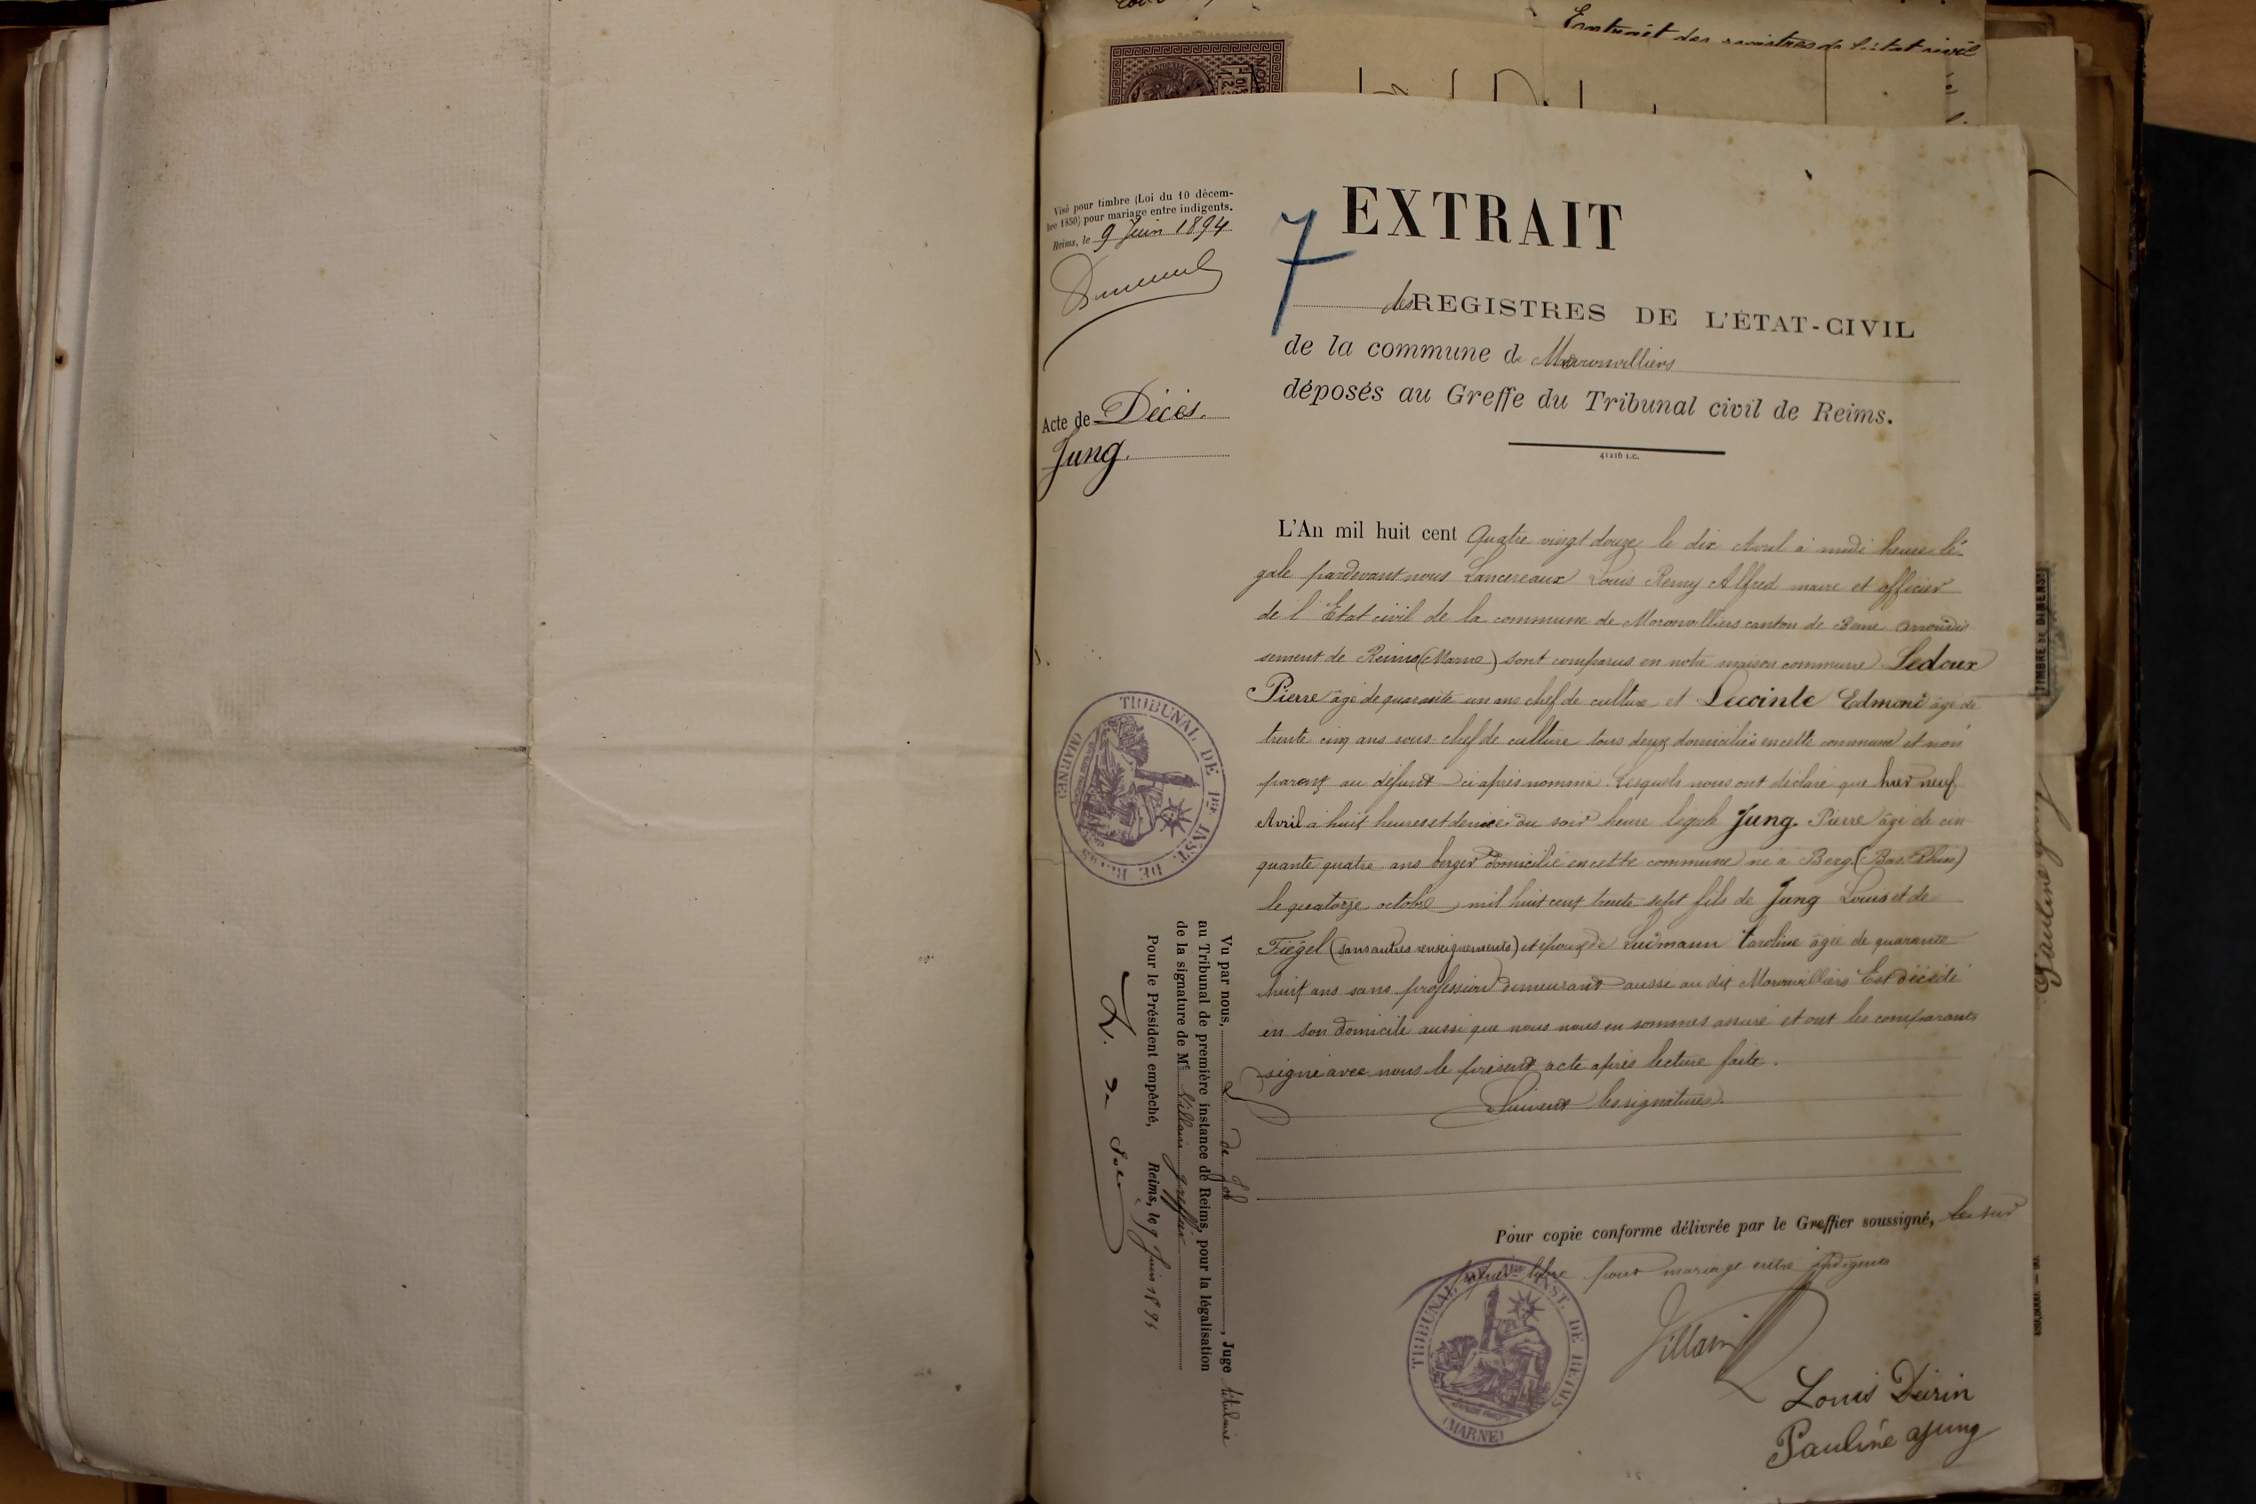 Extrait des registres de l'état civil
Visé pour timbre (Loi du 10 décem-
bre 1850) pour mariage entre indigents.
Reims, le 9 Juin 1894
7
EXTRAIT
des REGISTRES DE L'ÉTAT-CIVIL
de la commune de Moronvilliers
déposés au Greffe du Tribunal civil de Reims.
41216 I.C.
Acte de Décès.
Jung.
L'An mil huit cent Quatre vingt douze le dix Avril à midi heure lé-
gale pardevant nous Lancereaux Louis Remy Alfred maire et officier
de l'Etat civil de la commune de Moronvilliers canton de Beine arrondis
sement de Reims (Marne) sont comparus en notre maison commune Ledoux
Pierre âgé de quarante un ans chef de culture et Lecointe Edmond âgé de
trente cinq ans sous chef de culture tous deux domiciliés en cette commune et non
parents au défunt ci après nommé. Lesquels nous ont déclaré que hier neuf
Avril à huit heures et demie du soir heure légale Jung. Pierre âgé de cin
quante quatre ans berger domicilié en cette commune né à Berg (Bas-Rhin)
le quatorze octobre mil huit cent trente sept fils de Jung Louis et de
Fiégel (sans autres renseignements) et époux de Ludmann Caroline âgée de quarante
huit ans sans profession demeurant aussi au dit Moronvilliers Est décédé
en son domicile aussi que nous nous en sommes assuré et ont les comparants
signé avec nous le présent acte après lecture faite.
Suivent les signatures.
Pour copie conforme délivrée par le Greffier soussigné,
pour mariage entre indigents
Villain
TRIBUNAL DE 1re INST. DE REIMS
(MARNE)
Louis Dérin
Pauline Jung
TRIBUNAL DE 1re INST. DE REIMS
(MARNE)
Vu par nous, , Juge titulaire
au Tribunal de première instance de Reims, pour la légalisation
de la signature de Me Villain greffier
Pour le Président empêché, Reims, le 9 Juin 1894
TIMBRE DE DIMENS
Pauline Jung